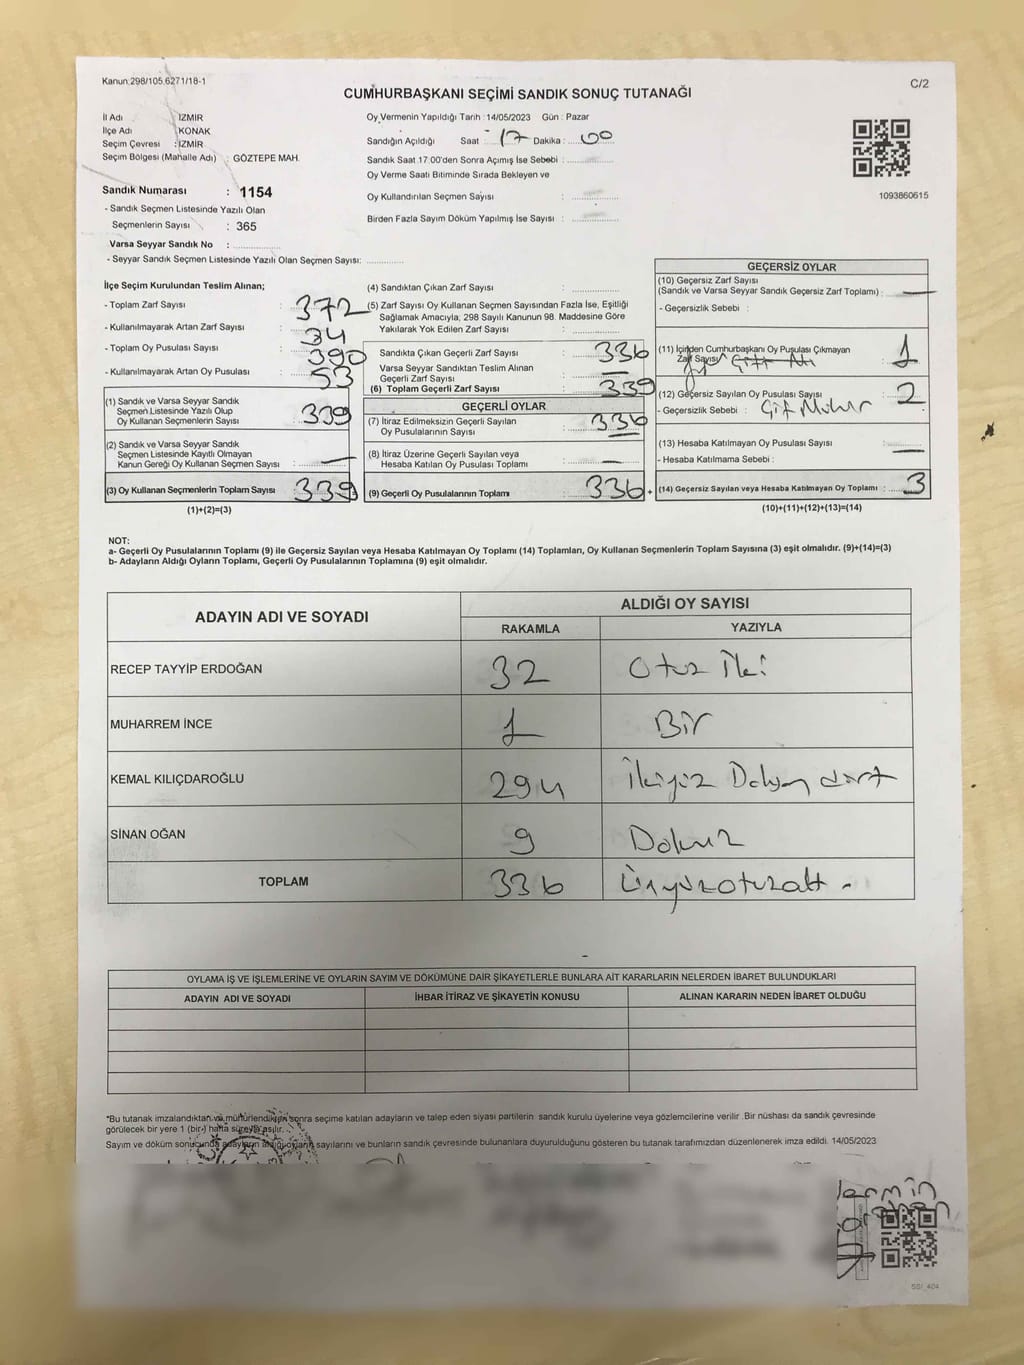 Kanun:298/105.6271/18-1
C/2
CUMHURBAŞKANI SEÇİMİ SANDIK SONUÇ TUTANAĞI
İl Adı : İZMİR
İlçe Adı : KONAK
Seçim Çevresi : İZMİR
Seçim Bölgesi (Mahalle Adı) : GÖZTEPE MAH.
Sandık Numarası : 1154
- Sandık Seçmen Listesinde Yazılı Olan
Seçmenlerin Sayısı : 365
Varsa Seyyar Sandık No :
- Seyyar Sandık Seçmen Listesinde Yazılı Olan Seçmen Sayısı:
Oy Vermenin Yapıldığı Tarih : 14/05/2023 Gün : Pazar
Sandığın Açıldığı Saat : 17 Dakika : 00
Sandık Saat 17:00'den Sonra Açımış İse Sebebi :
Oy Verme Saati Bitiminde Sırada Bekleyen ve
Oy Kullandırılan Seçmen Sayısı :
Birden Fazla Sayım Döküm Yapılmış İse Sayısı :
1093860615
İlçe Seçim Kurulundan Teslim Alınan;
- Toplam Zarf Sayısı : 372
- Kullanılmayarak Artan Zarf Sayısı : 34
- Toplam Oy Pusulası Sayısı : 390
- Kullanılmayarak Artan Oy Pusulası : 53
(1) Sandık ve Varsa Seyyar Sandık
Seçmen Listesinde Yazılı Olup
Oy Kullanan Seçmenlerin Sayısı : 339
(2) Sandık ve Varsa Seyyar Sandık
Seçmen Listesinde Kayıtlı Olmayan
Kanun Gereği Oy Kullanan Seçmen Sayısı : —
(3) Oy Kullanan Seçmenlerin Toplam Sayısı : 339
(1)+(2)=(3)
(4) Sandıktan Çıkan Zarf Sayısı :
(5) Zarf Sayısı Oy Kullanan Seçmen Sayısından Fazla İse, Eşitliği
Sağlamak Amacıyla, 298 Sayılı Kanunun 98. Maddesine Göre
Yakılarak Yok Edilen Zarf Sayısı :
Sandıkta Çıkan Geçerli Zarf Sayısı : 336
Varsa Seyyar Sandıktan Teslim Alınan
Geçerli Zarf Sayısı : —
(6) Toplam Geçerli Zarf Sayısı : 339
GEÇERLİ OYLAR
(7) İtiraz Edilmeksizin Geçerli Sayılan
Oy Pusulalarının Sayısı : 336
(8) İtiraz Üzerine Geçerli Sayılan veya
Hesaba Katılan Oy Pusulası Toplamı : —
(9) Geçerli Oy Pusulalarının Toplamı : 336 +
GEÇERSİZ OYLAR
(10) Geçersiz Zarf Sayısı
(Sandık ve Varsa Seyyar Sandık Geçersiz Zarf Toplamı) : —
- Geçersizlik Sebebi :
(11) İçinden Cumhurbaşkanı Oy Pusulası Çıkmayan
Zarf Sayısı 1
(12) Geçersiz Sayılan Oy Pusulası Sayısı : 2
- Geçersizlik Sebebi : Çift Mühür
(13) Hesaba Katılmayan Oy Pusulası Sayısı : —
- Hesaba Katılmama Sebebi :
(14) Geçersiz Sayılan veya Hesaba Katılmayan Oy Toplamı : 3
(10)+(11)+(12)+(13)=(14)
NOT:
a- Geçerli Oy Pusulalarının Toplamı (9) ile Geçersiz Sayılan veya Hesaba Katılmayan Oy Toplamı (14) Toplamları, Oy Kullanan Seçmenlerin Toplam Sayısına (3) eşit olmalıdır. (9)+(14)=(3)
b- Adayların Aldığı Oyların Toplamı, Geçerli Oy Pusulalarının Toplamına (9) eşit olmalıdır.
ADAYIN ADI VE SOYADI
ALDIĞI OY SAYISI
RAKAMLA YAZIYLA
RECEP TAYYİP ERDOĞAN 32 Otuz İki
MUHARREM İNCE 1 Bir
KEMAL KILIÇDAROĞLU 294 İkiyüz Doksan dört
SİNAN OĞAN 9 Dokuz
TOPLAM 336 Üçyüzotuzaltı -
OYLAMA İŞ VE İŞLEMLERİNE VE OYLARIN SAYIM VE DÖKÜMÜNE DAİR ŞİKAYETLERLE BUNLARA AİT KARARLARIN NELERDEN İBARET BULUNDUKLARI
ADAYIN ADI VE SOYADI İHBAR İTİRAZ VE ŞİKAYETİN KONUSU ALINAN KARARIN NEDEN İBARET OLDUĞU
*Bu tutanak imzalandıktan ve mühürlendikten sonra seçime katılan adayların ve talep eden siyasi partilerin sandık kurulu üyelerine veya gözlemcilerine verilir .Bir nüshası da sandık çevresinde
görülecek bir yere 1 (bir-) hafta süreyle asılır.
Sayım ve döküm sonucunda adayların aldığı oyların sayılarını ve bunların sandık çevresinde bulunanlara duyurulduğunu gösteren bu tutanak tarafımızdan düzenlenerek imza edildi. 14/05/2023
SSI_404